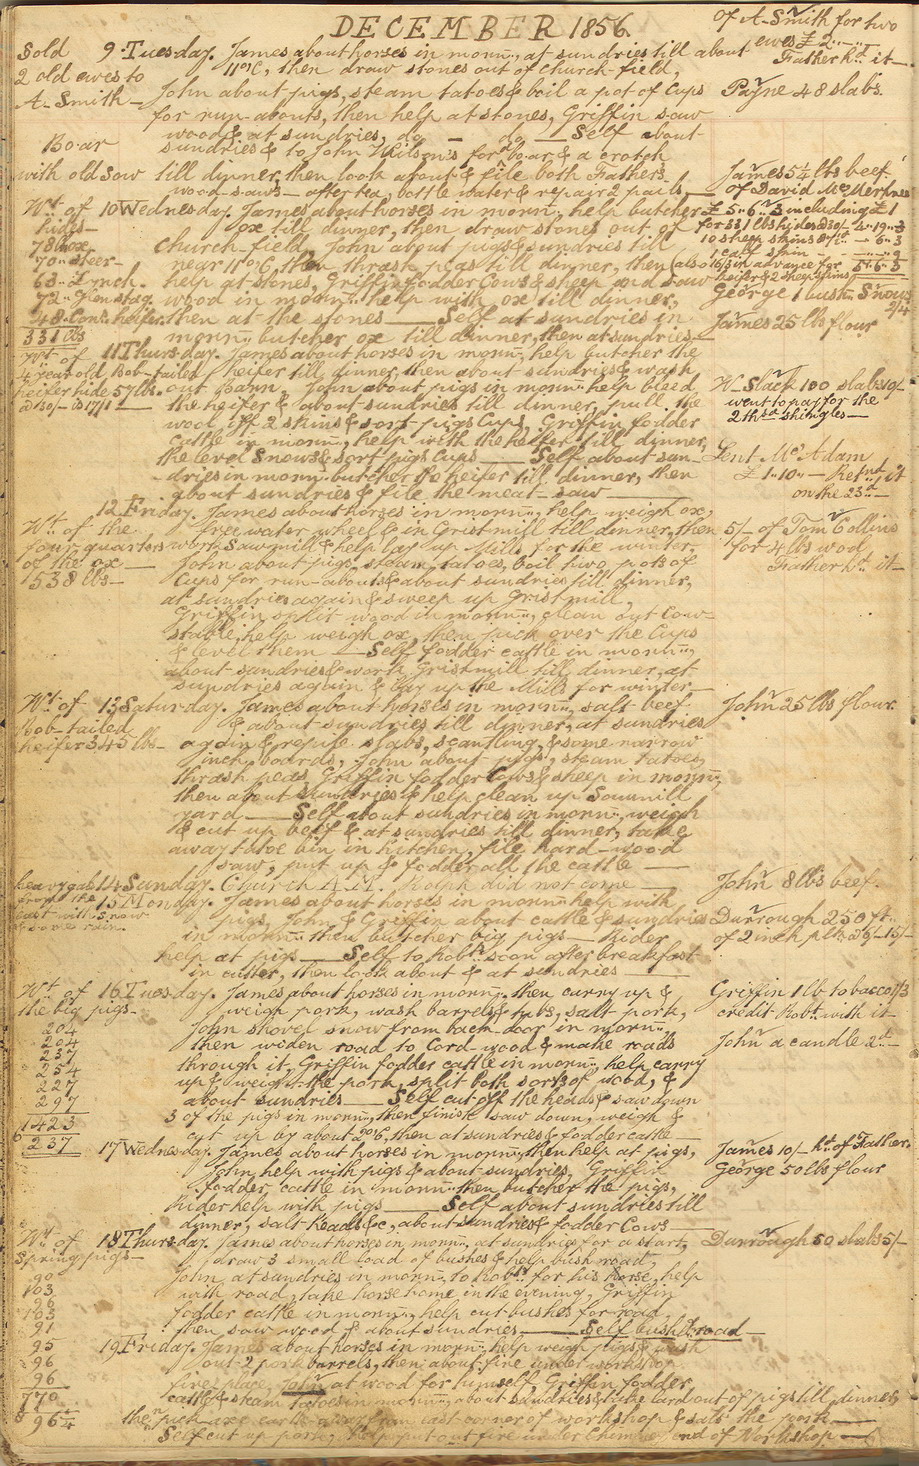 DECEMBER 1856.
of A. Smith for two
ewes £2
Father h'd it
Sold 9 Tuesday. James about horses in morn:, at sundries till about
2 old ewes to 11 o'C, then draw stones out of church-field,
A. Smith John about pigs, steam tatoes & boil a pot of Cups Payne 48 slabs.
for run-abouts, then help at stones, Griffin saw
wood & at sundries, do — do — Self about
Boar sundries & to John Wilson's for boar, & a crotch
with old sow till dinner, then look about & file both Father's James 5¼ lbs beef
wood-saws — after tea, bottle water & repair 2 pails of David
Wt of 10 Wednesday. James about horses in morn:, help butcher £5..6..3 including £1
hides ox till dinner, then draw stones out of for 331 lbs hides
78 lbs ox church-field, John about pigs & sundries till 10 sheep skins
70 " steer near 11 o'C, then thrash peas till dinner, then
63 " Lynch. help at stones, Griffin fodder Cows & sheep and saw
72 " Glen stag. wood in morn:, help with ox till dinner, George 1 bush:
48 " heifer. then at the stones — Self at sundries in James 25 lbs flour
331 lbs morn:, butcher ox till dinner, then at sundries
Wt of 11 Thursday. James about horses in morn:, help butcher the
4 year old Bob-tailed heifer till dinner, then about sundries & wash
heifer hide 57 lbs. out barn, John about pigs in morn: help bleed W. Slack 100 slabs
the heifer & about sundries till dinner, pull the went to pay for the
wool off 2 skins & sort pigs Cups, Griffin fodder shingles
cattle in morn:, help with the heifer till dinner,
the level snows & sort pigs Cups — Self about sun- Lent McAdam
dries in morn: butcher the heifer till dinner, then £1..10..— Retnd it
about sundries & file the meat-saw on the 23d
12 Friday. James about horses in morn:, help weigh ox,
Wt of the free water wheel & in Gristmill till dinner, then 5/- of Tom Collins
four quarters work Sawmill & help lay up Mills for the winter, for 4 lbs wool
of the ox John about pigs, steam tatoes, boil two pots of Father h'd it
1538 lbs Cups for run-abouts & about sundries till dinner,
at sundries again & sweep up Gristmill,
Griffin split wood in morn:, clean out Cow-
stable, help weigh ox, then pick over the Cups
& level them — Self fodder cattle in morn:,
about sundries & work Gristmill till dinner, at
sundries again & lay up the Mills for winter
Wt of 13 Saturday. James about horses in morn:, salt beef John 25 lbs flour.
Bob-tailed & about sundries till dinner, at sundries
heifer 345 lbs again & refuse slabs, scantling, & some narrow
inch boards, John about pigs, steam tatoes,
thrash peas, Griffin fodder Cows & sheep in morn:,
then about sundries & help clean up Sawmill
yard — Self about sundries in morn:, weigh
& cut up beef & at sundries till dinner, take
away tatoe bin in kitchen, file hard-wood
saw, put up & fodder all the cattle
heavy gale 14 Sunday. Church A.M. Ralph did not come John 8 lbs beef.
from the 15 Monday. James about horses in morn: help with
east with snow pigs, John & Griffin about cattle & sundries Durrough 250 ft
& some rain. in morn: then butcher big pigs — Rider of 2 inch plk
help at pigs — Self to Robt soon after breakfast
in cutter, then look about & at sundries
Wt of 16 Tuesday. James about horses in morn:, then carry up & Griffin 1 lb tobacco
the big pigs weigh pork, wash barrels & tubs, salt pork, credit Robt with it
204 John shovel snow from back-door in morn:,
204 then widen road to Cord wood & make roads John a candle
237 through it, Griffin fodder cattle in morn:, help carry
254 up & weigh the pork, split both sorts of wood, &
227 about sundries — Self cut off the heads & saw down
297 3 of the pigs in morn:, then finish saw down, weigh &
1423 cut up by about 2 o'C, then at sundries & fodder cattle
6 237 17 Wednesday. James about horses in morn:, then help at pigs, James 10/- h'd of Father.
John help with pigs & about sundries, Griffin George 50 lbs flour
fodder cattle in morn: then butcher the pigs,
Rider help with pigs — Self about sundries till
dinner, salt heads &c, about sundries & fodder Cows
Wt of 18 Thursday. James about horses in morn:, at sundries for a start, Durrough 50 slabs 5/-
Spring pigs draw 3 small load of bushes & help bush road,
90 John at sundries in morn:, to Robt's for his horse, help
103 with road, take horse home in the evening, Griffin
96 fodder cattle in morn:, help cut bushes for road,
103 then saw wood & about sundries — Self bush road
91
95 19 Friday. James about horses in morn:, help weigh pigs & wash
96 out 2 pork barrels, then about fire under workshop
96 fire place, John at wood for himself, Griffin fodder
770 cattle & steam tatoes in morn:, about sundries & take lard out of pigs till dinner,
8 96¼ then pick axe earth away from east corner of workshop & salt the pork
Self cut up pork, help put out fire under Chimney end of Workshop